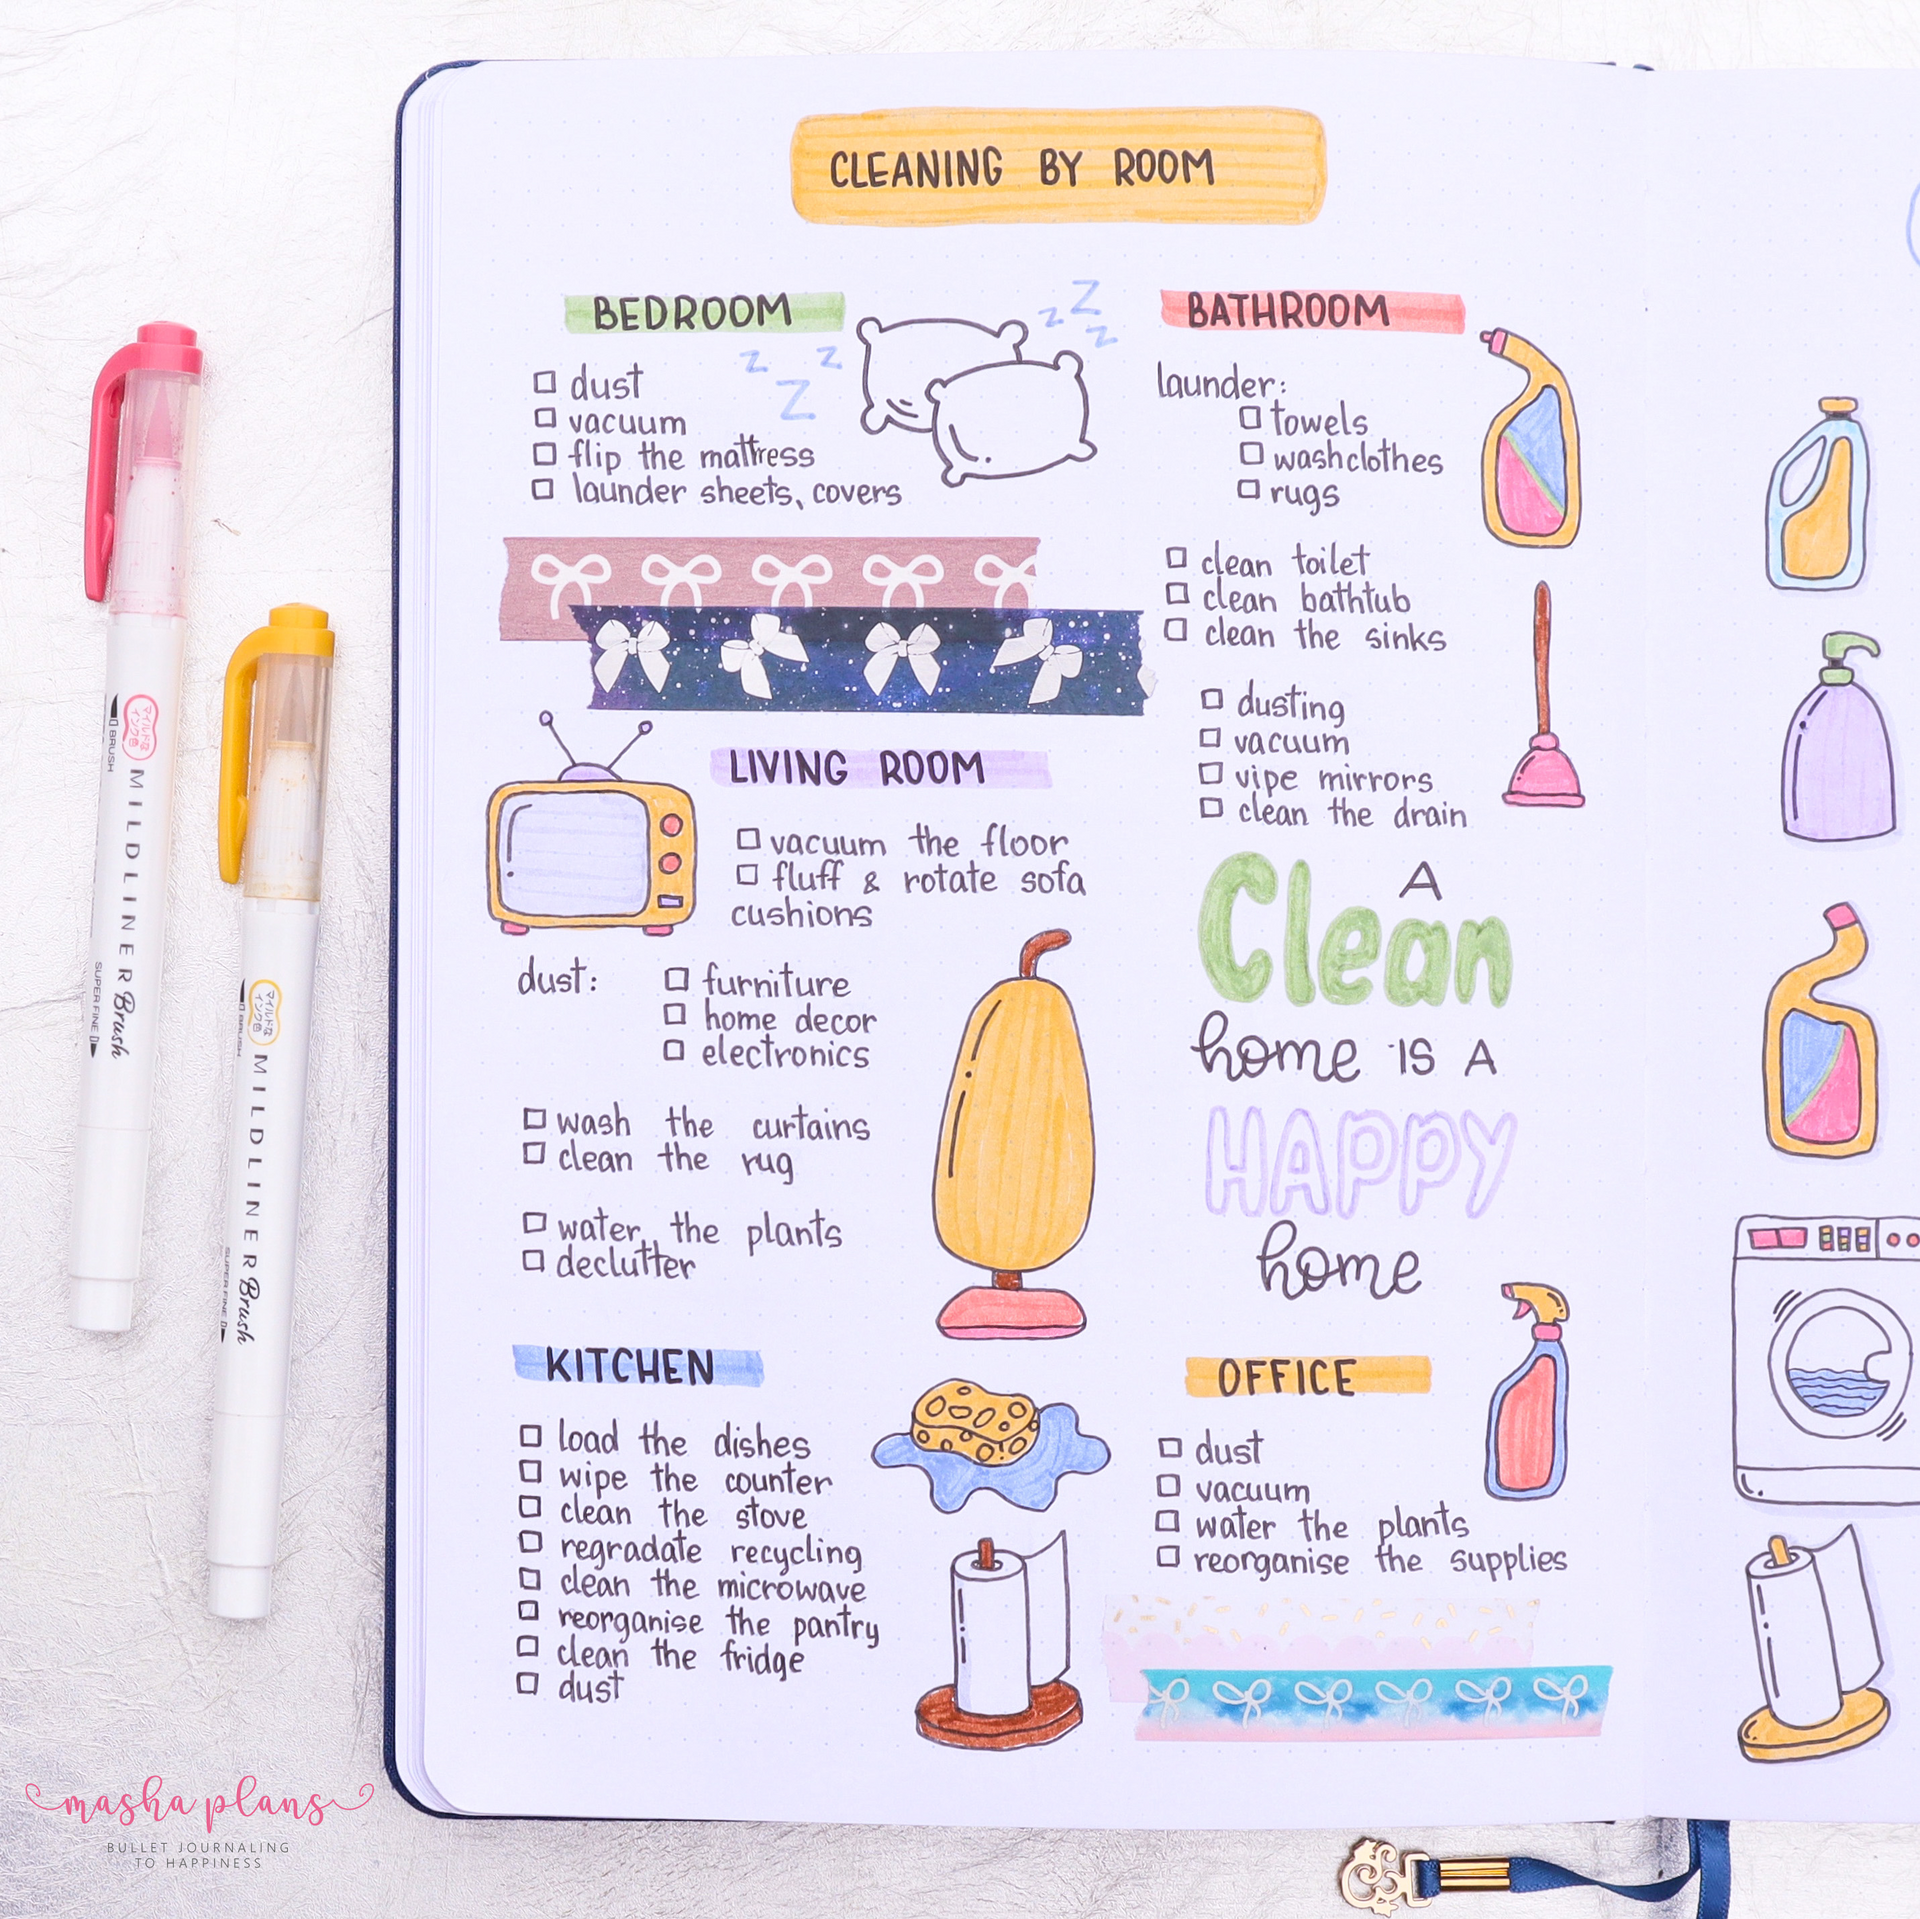 CLEANING BY ROOM
BEDROOM
dust
vacuum
flip the mattress
launder sheets, covers
z z z
z z z
BATHROOM
launder:
towels
washclothes
rugs
clean toilet
clean bathtub
clean the sinks
dusting
vacuum
vipe mirrors
clean the drain
LIVING ROOM
vacuum the floor
fluff & rotate sofa
cushions
dust:
furniture
home decor
electronics
wash the curtains
clean the rug
water the plants
declutter
A
Clean
home IS A
HAPPY
home
KITCHEN
load the dishes
wipe the counter
clean the stove
regradate recycling
clean the microwave
reorganise the pantry
clean the fridge
dust
OFFICE
dust
vacuum
water the plants
reorganise the supplies
マイルドな
インク色
BRUSH
MILDLINER Brush
SUPER FINE
マイルドな
インク色
BRUSH
MILDLINER Brush
SUPER FINE
masha plans
BULLET JOURNALING
TO HAPPINESS